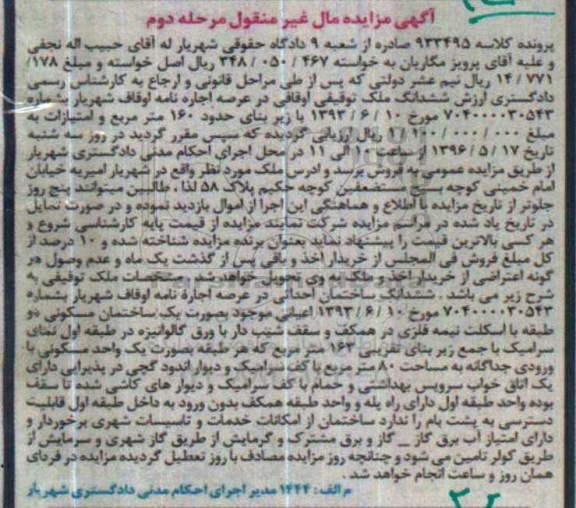 آگهی مزایده مال غیر منقول مرحله دوم
پرونده کلاسه ۹۳۳۴۹۵ صادره از شعبه ۹ دادگاه حقوقی شهریار له آقای حبیب اله نجفی
و علیه آقای پرویز مکاریان به خواسته ۴۶۷ / ۰۵۰ / ۳۴۸ ریال اصل خواسته و مبلغ ۱۷۸/
۷۷۱ / ۱۴ ریال نیم عشر دولتی که پس از طی مراحل قانونی و ارجاع به کارشناس رسمی
دادگستری ارزش ششدانگ ملک توقیفی اوقافی در عرصه اجاره نامه اوقاف شهریار بشماره
۷۰۴۰۰۰۰۳۰۵۴۳ مورخ ۱۰ / ۶ / ۱۳۹۳ با زیر بنای حدود ۱۶۰ متر مربع و امتیازات به
مبلغ ۰۰۰ / ۰۰۰ / ۱۰۰ / ۱ ریال ارزیابی گردیده که سپس مقرر گردید در روز سه شنبه
تاریخ ۱۷ / ۵ / ۱۳۹۶ از ساعت ۱۰ الی ۱۱ در محل اجرای احکام مدنی دادگستری شهریار
از طریق مزایده عمومی به فروش برسد و ادرس ملک مورد نظر واقع در شهریار امیریه خیابان
امام خمینی کوچه بسیج مستضعفین کوچه حکیم پلاک ۵۸ لذا ، طالبین میتوانند پنج روز
جلوتر از تاریخ مزایده با اطلاع و هماهنگی این اجرا از اموال بازدید نموده و در صورت تمایل
در تاریخ یاد شده در مراسم مزایده شرکت نمایند مزایده از قیمت پایه کارشناسی شروع و
هر کسی بالاترین قیمت را پیشنهاد نماید بعنوان برنده مزایده شناخته شده و ۱۰ درصد از
کل مبلغ فروش فی المجلس از خریدار اخذ و باقی پس از گذشت یک ماه و عدم وصول هر
گونه اعتراضی از خریدار اخذ و ملک به وی تحویل خواهد شد . مشخصات ملک توقیفی به
شرح زیر می باشد . ششدانگ ساختمان احداثی در عرصه اجاره نامه اوقاف شهریار بشماره
۷۰۴۰۰۰۰۳۰۵۴۳ مورخ ۱۰ / ۶ / ۱۳۹۳ اعیانی موجود بصورت یک ساختمان مسکونی دو
طبقه با اسکلت نیمه فلزی در همکف و سقف شیب دار با ورق گالوانیزه در طبقه اول نمای
سرامیک با جمع زیر بنای تقریبی ۱۶۳ متر مربع که هر طبقه بصورت یک واحد مسکونی با
ورودی جداگانه به مساحت ۸۰ متر مربع با کف سرامیک و دیوار اندود گچی در پذیرایی دارای
یک اتاق خواب سرویس بهداشتی و حمام با کف سرامیک و دیوار های کاشی شده تا سقف
بوده واحد طبقه اول دارای راه پله و واحد طبقه همکف بدون ورود به داخل طبقه اول قابلیت
دسترسی به پشت بام را ندارد ساختمان از امکانات خدمات و تاسیسات شهری برخوردار و
دارای امتیاز آب برق گاز _ گاز و برق مشترک و گرمایش از طریق گاز شهری و سرمایش از
طریق کولر تامین می شود و چنانچه روز مزایده مصادف با روز تعطیل گردیده مزایده در فردای
همان روز و ساعت انجام خواهد شد .
م الف : ۱۴۴۴ مدیر اجرای احکام مدنی دادگستری شهریار